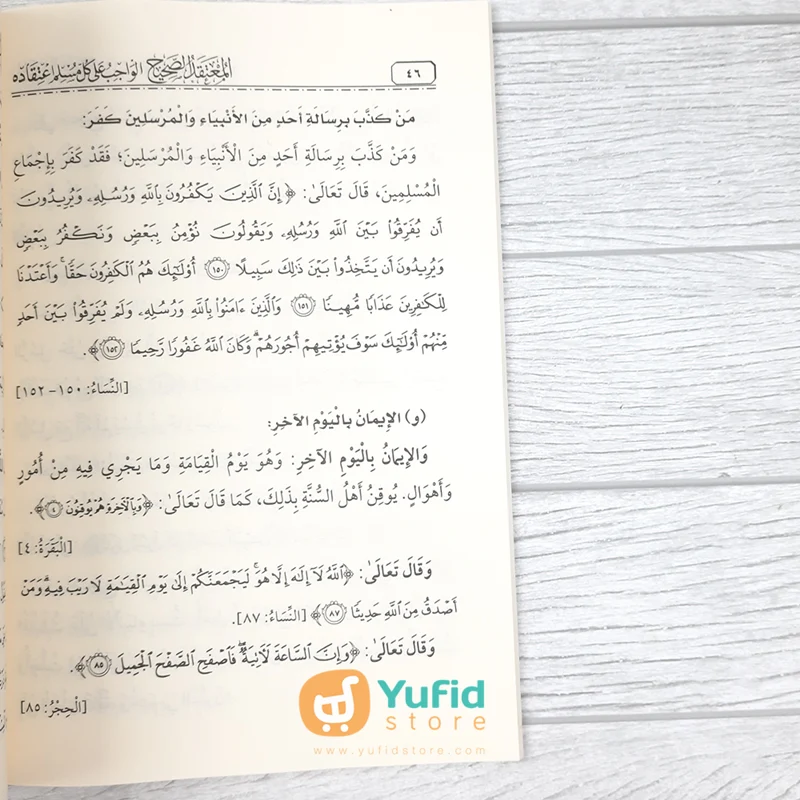 المعتقد الصحيح الواجب على كل مسلم اعتقاده
٤٦
مَنْ كَذَّبَ بِرِسَالَةِ أَحَدٍ مِنَ الأَنْبِيَاءِ وَالْمُرْسَلِينَ كَفَرَ:
وَمَنْ كَذَّبَ بِرِسَالَةِ أَحَدٍ مِنَ الْأَنْبِيَاءِ وَالْمُرْسَلِينَ؛ فَقَدْ كَفَرَ بِإِجْمَاعِ
الْمُسْلِمِينَ، قَالَ تَعَالَىٰ: ﴿إِنَّ ٱلَّذِينَ يَكْفُرُونَ بِٱللَّهِ وَرُسُلِهِۦ وَيُرِيدُونَ
أَن يُفَرِّقُوا۟ بَيْنَ ٱللَّهِ وَرُسُلِهِۦ وَيَقُولُونَ نُؤْمِنُ بِبَعْضٍ وَنَكْفُرُ بِبَعْضٍ
وَيُرِيدُونَ أَن يَتَّخِذُوا۟ بَيْنَ ذَٰلِكَ سَبِيلًا ۝١٥٠ أُو۟لَـٰٓئِكَ هُمُ ٱلْكَـٰفِرُونَ حَقًّا ۚ وَأَعْتَدْنَا
لِلْكَـٰفِرِينَ عَذَابًا مُّهِينًا ۝١٥١ وَٱلَّذِينَ ءَامَنُوا۟ بِٱللَّهِ وَرُسُلِهِۦ وَلَمْ يُفَرِّقُوا۟ بَيْنَ أَحَدٍ
مِّنْهُمْ أُو۟لَـٰٓئِكَ سَوْفَ يُؤْتِيهِمْ أُجُورَهُمْ ۗ وَكَانَ ٱللَّهُ غَفُورًا رَّحِيمًا ۝١٥٢﴾.
[النِّسَاءُ: ١٥٠- ١٥٢]
(و) الإِيمَانُ بِالْيَوْمِ الآخِرِ:
وَالإِيمَانُ بِالْيَوْمِ الآخِرِ: وَهُوَ يَوْمُ الْقِيَامَةِ وَمَا يَجْرِي فِيهِ مِنْ أُمُورٍ
وَأَهْوَالٍ. يُوقِنُ أَهْلُ السُّنَّةِ بِذَلِكَ، كَمَا قَالَ تَعَالَىٰ: ﴿وَبِٱلْـَٔاخِرَةِ هُمْ يُوقِنُونَ ۝٤﴾.
[الْبَقَرَةُ: ٤]
وَقَالَ تَعَالَىٰ: ﴿ٱللَّهُ لَآ إِلَـٰهَ إِلَّا هُوَ ۚ لَيَجْمَعَنَّكُمْ إِلَىٰ يَوْمِ ٱلْقِيَـٰمَةِ لَا رَيْبَ فِيهِ ۗ وَمَنْ
أَصْدَقُ مِنَ ٱللَّهِ حَدِيثًا ۝٨٧﴾ [النِّسَاءُ: ٨٧].
وَقَالَ تَعَالَىٰ: ﴿وَإِنَّ ٱلسَّاعَةَ لَـَٔاتِيَةٌ ۖ فَٱصْفَحِ ٱلصَّفْحَ ٱلْجَمِيلَ ۝٨٥﴾.
[الْحِجْرُ: ٨٥]
Yufid
store
www.yufidstore.com